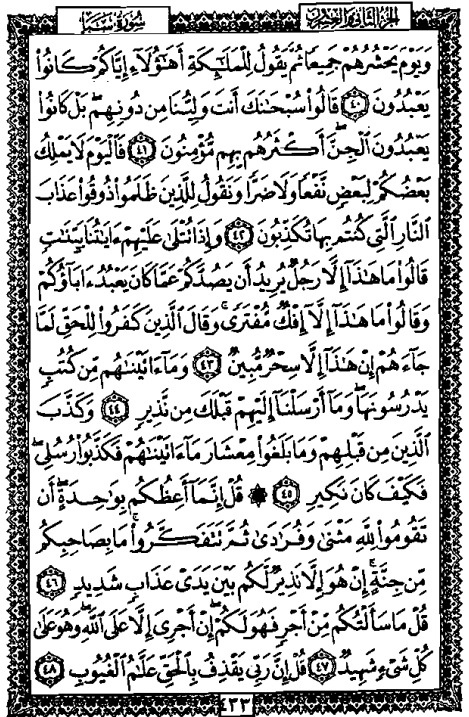 سُورَةُ سَبَإٍ
الجُزْءُ الثَّانِي وَالعِشْرُونَ
وَيَوْمَ يَحْشُرُهُمْ جَمِيعًا ثُمَّ يَقُولُ لِلْمَلَٰٓئِكَةِ أَهَٰٓؤُلَآءِ إِيَّاكُمْ كَانُوا۟
يَعْبُدُونَ ﴿٤٠﴾ قَالُوا۟ سُبْحَٰنَكَ أَنتَ وَلِيُّنَا مِن دُونِهِم ۖ بَلْ كَانُوا۟
يَعْبُدُونَ ٱلْجِنَّ ۖ أَكْثَرُهُم بِهِم مُّؤْمِنُونَ ﴿٤١﴾ فَٱلْيَوْمَ لَا يَمْلِكُ
بَعْضُكُمْ لِبَعْضٍ نَّفْعًا وَلَا ضَرًّا وَنَقُولُ لِلَّذِينَ ظَلَمُوا۟ ذُوقُوا۟ عَذَابَ
ٱلنَّارِ ٱلَّتِى كُنتُم بِهَا تُكَذِّبُونَ ﴿٤٢﴾ وَإِذَا تُتْلَىٰ عَلَيْهِمْ ءَايَٰتُنَا بَيِّنَٰتٍ
قَالُوا۟ مَا هَٰذَآ إِلَّا رَجُلٌ يُرِيدُ أَن يَصُدَّكُمْ عَمَّا كَانَ يَعْبُدُ ءَابَآؤُكُمْ
وَقَالُوا۟ مَا هَٰذَآ إِلَّآ إِفْكٌ مُّفْتَرًى ۚ وَقَالَ ٱلَّذِينَ كَفَرُوا۟ لِلْحَقِّ لَمَّا
جَآءَهُمْ إِنْ هَٰذَآ إِلَّا سِحْرٌ مُّبِينٌ ﴿٤٣﴾ وَمَآ ءَاتَيْنَٰهُم مِّن كُتُبٍ
يَدْرُسُونَهَا ۖ وَمَآ أَرْسَلْنَآ إِلَيْهِمْ قَبْلَكَ مِن نَّذِيرٍ ﴿٤٤﴾ وَكَذَّبَ
ٱلَّذِينَ مِن قَبْلِهِمْ وَمَا بَلَغُوا۟ مِعْشَارَ مَآ ءَاتَيْنَٰهُمْ فَكَذَّبُوا۟ رُسُلِى ۖ
فَكَيْفَ كَانَ نَكِيرِ ﴿٤٥﴾ ۞ قُلْ إِنَّمَآ أَعِظُكُم بِوَٰحِدَةٍ ۖ أَن
تَقُومُوا۟ لِلَّهِ مَثْنَىٰ وَفُرَٰدَىٰ ثُمَّ تَتَفَكَّرُوا۟ ۚ مَا بِصَاحِبِكُم
مِّن جِنَّةٍ ۚ إِنْ هُوَ إِلَّا نَذِيرٌ لَّكُم بَيْنَ يَدَىْ عَذَابٍ شَدِيدٍ ﴿٤٦﴾
قُلْ مَا سَأَلْتُكُم مِّنْ أَجْرٍ فَهُوَ لَكُمْ ۖ إِنْ أَجْرِىَ إِلَّا عَلَى ٱللَّهِ ۖ وَهُوَ عَلَىٰ
كُلِّ شَىْءٍ شَهِيدٌ ﴿٤٧﴾ قُلْ إِنَّ رَبِّى يَقْذِفُ بِٱلْحَقِّ عَلَّٰمُ ٱلْغُيُوبِ ﴿٤٨﴾
٤٣٣